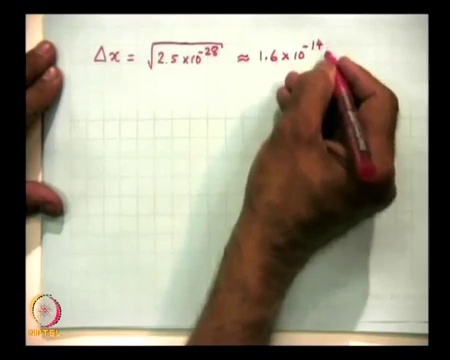 Δx = √2.5×10⁻²⁸ ≈ 1.6×10⁻¹⁴
NPTEL